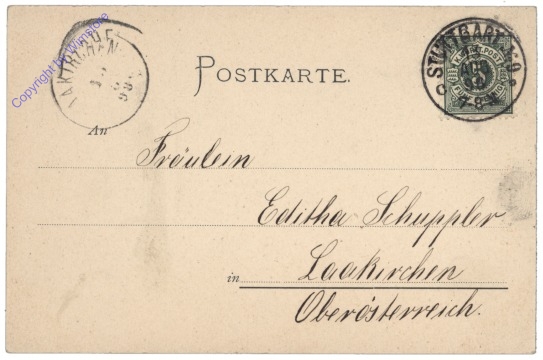 Copyright by Wimstore
LAAKIRCHEN
POSTKARTE.
STUTTGART
AUG
7-8 N
5
An
Fräulein
Editha Schuppler
in Laakirchen
Oberösterreich.